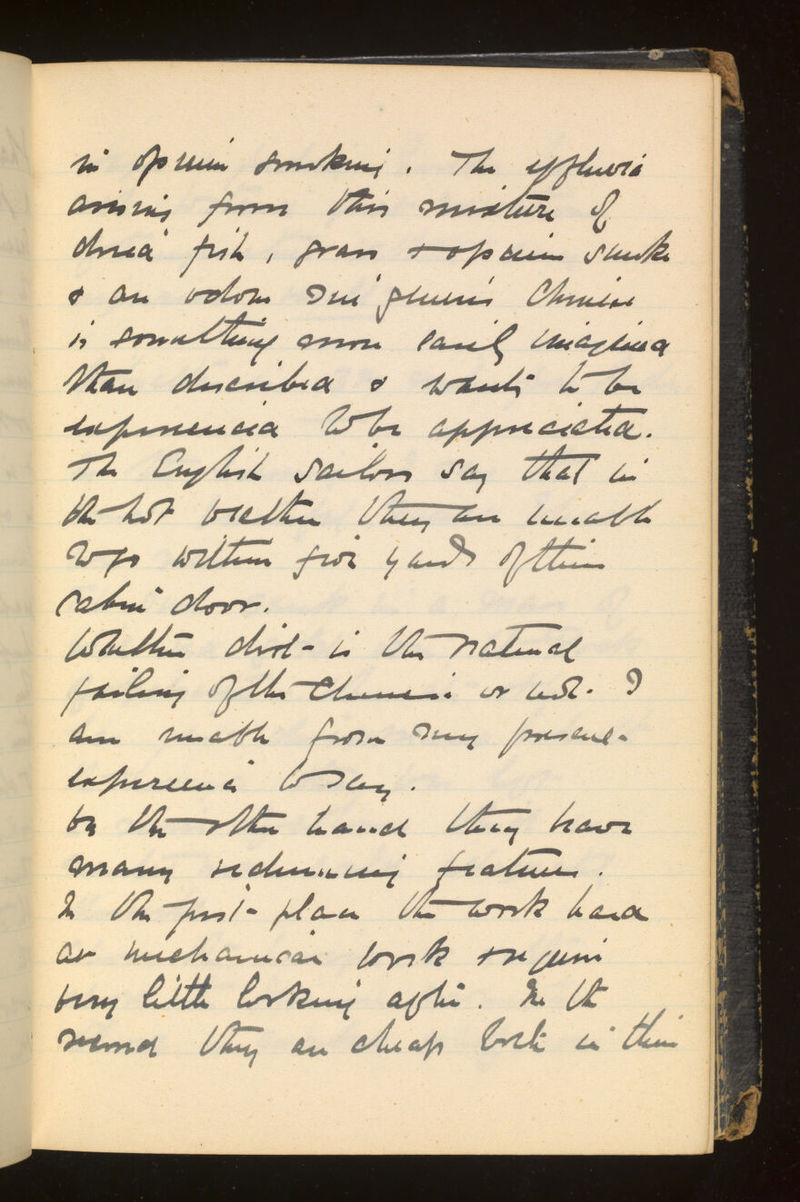 in opium smoking. The effluvia
arising from this mixture of
dried fish, grass & opium smoke
& an odour sui generis Chinese
is something more easily imagined
than described & wants to be
experienced to be appreciated.
The English sailors say that in
the hot weather they are unable
to go within five yards of their
cabin door.
Whether dirt is the natural
failing of the Chinese or not I
am unable from my present
experience to say.
On the other hand they have
many redeeming features.
In the first place the work hard
at mechanical work & require
very little looking after. In the
second they are cheap both in their